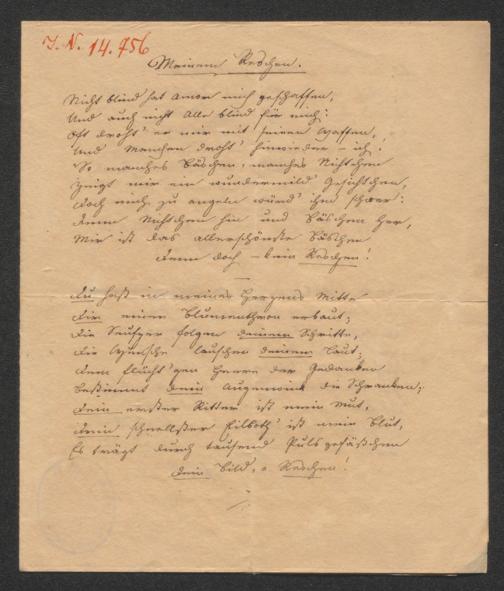 I. N. 14.756
Meinem Röschen.
Nicht blind hat Amor mich geschaffen,
Und auch nicht Alle blind für mich:
Oft droht' er mir mit seinen Waffen,
Und Manchen droht' hinwieder – ich:
So manches Bäschen, manches Nichtchen
Zeigt mir ein wundermild Gesichtchen,
Doch mich zu angeln würd' ihm schwer:
Denn Nichtchen hin und Bäschen her,
Mir ist das allerschönste Bäschen
Denn doch – kein Röschen!
Du hast in meines Herzens Mitte
Dir einen Blumenthron erbaut;
Die Seufzer folgen deinem Schritte,
Die Wünsche lauschen deinem Laut;
Dem flücht'gen Heere der Gedanken
Bestimmt dein Augenwink die Schranken;
Dein erster Ritter ist mein Mut,
Dein schnellster Eilboth' ist mein Blut,
Es trägt durch tausend Pulsgefäßchen
Dein Bild, o Röschen!